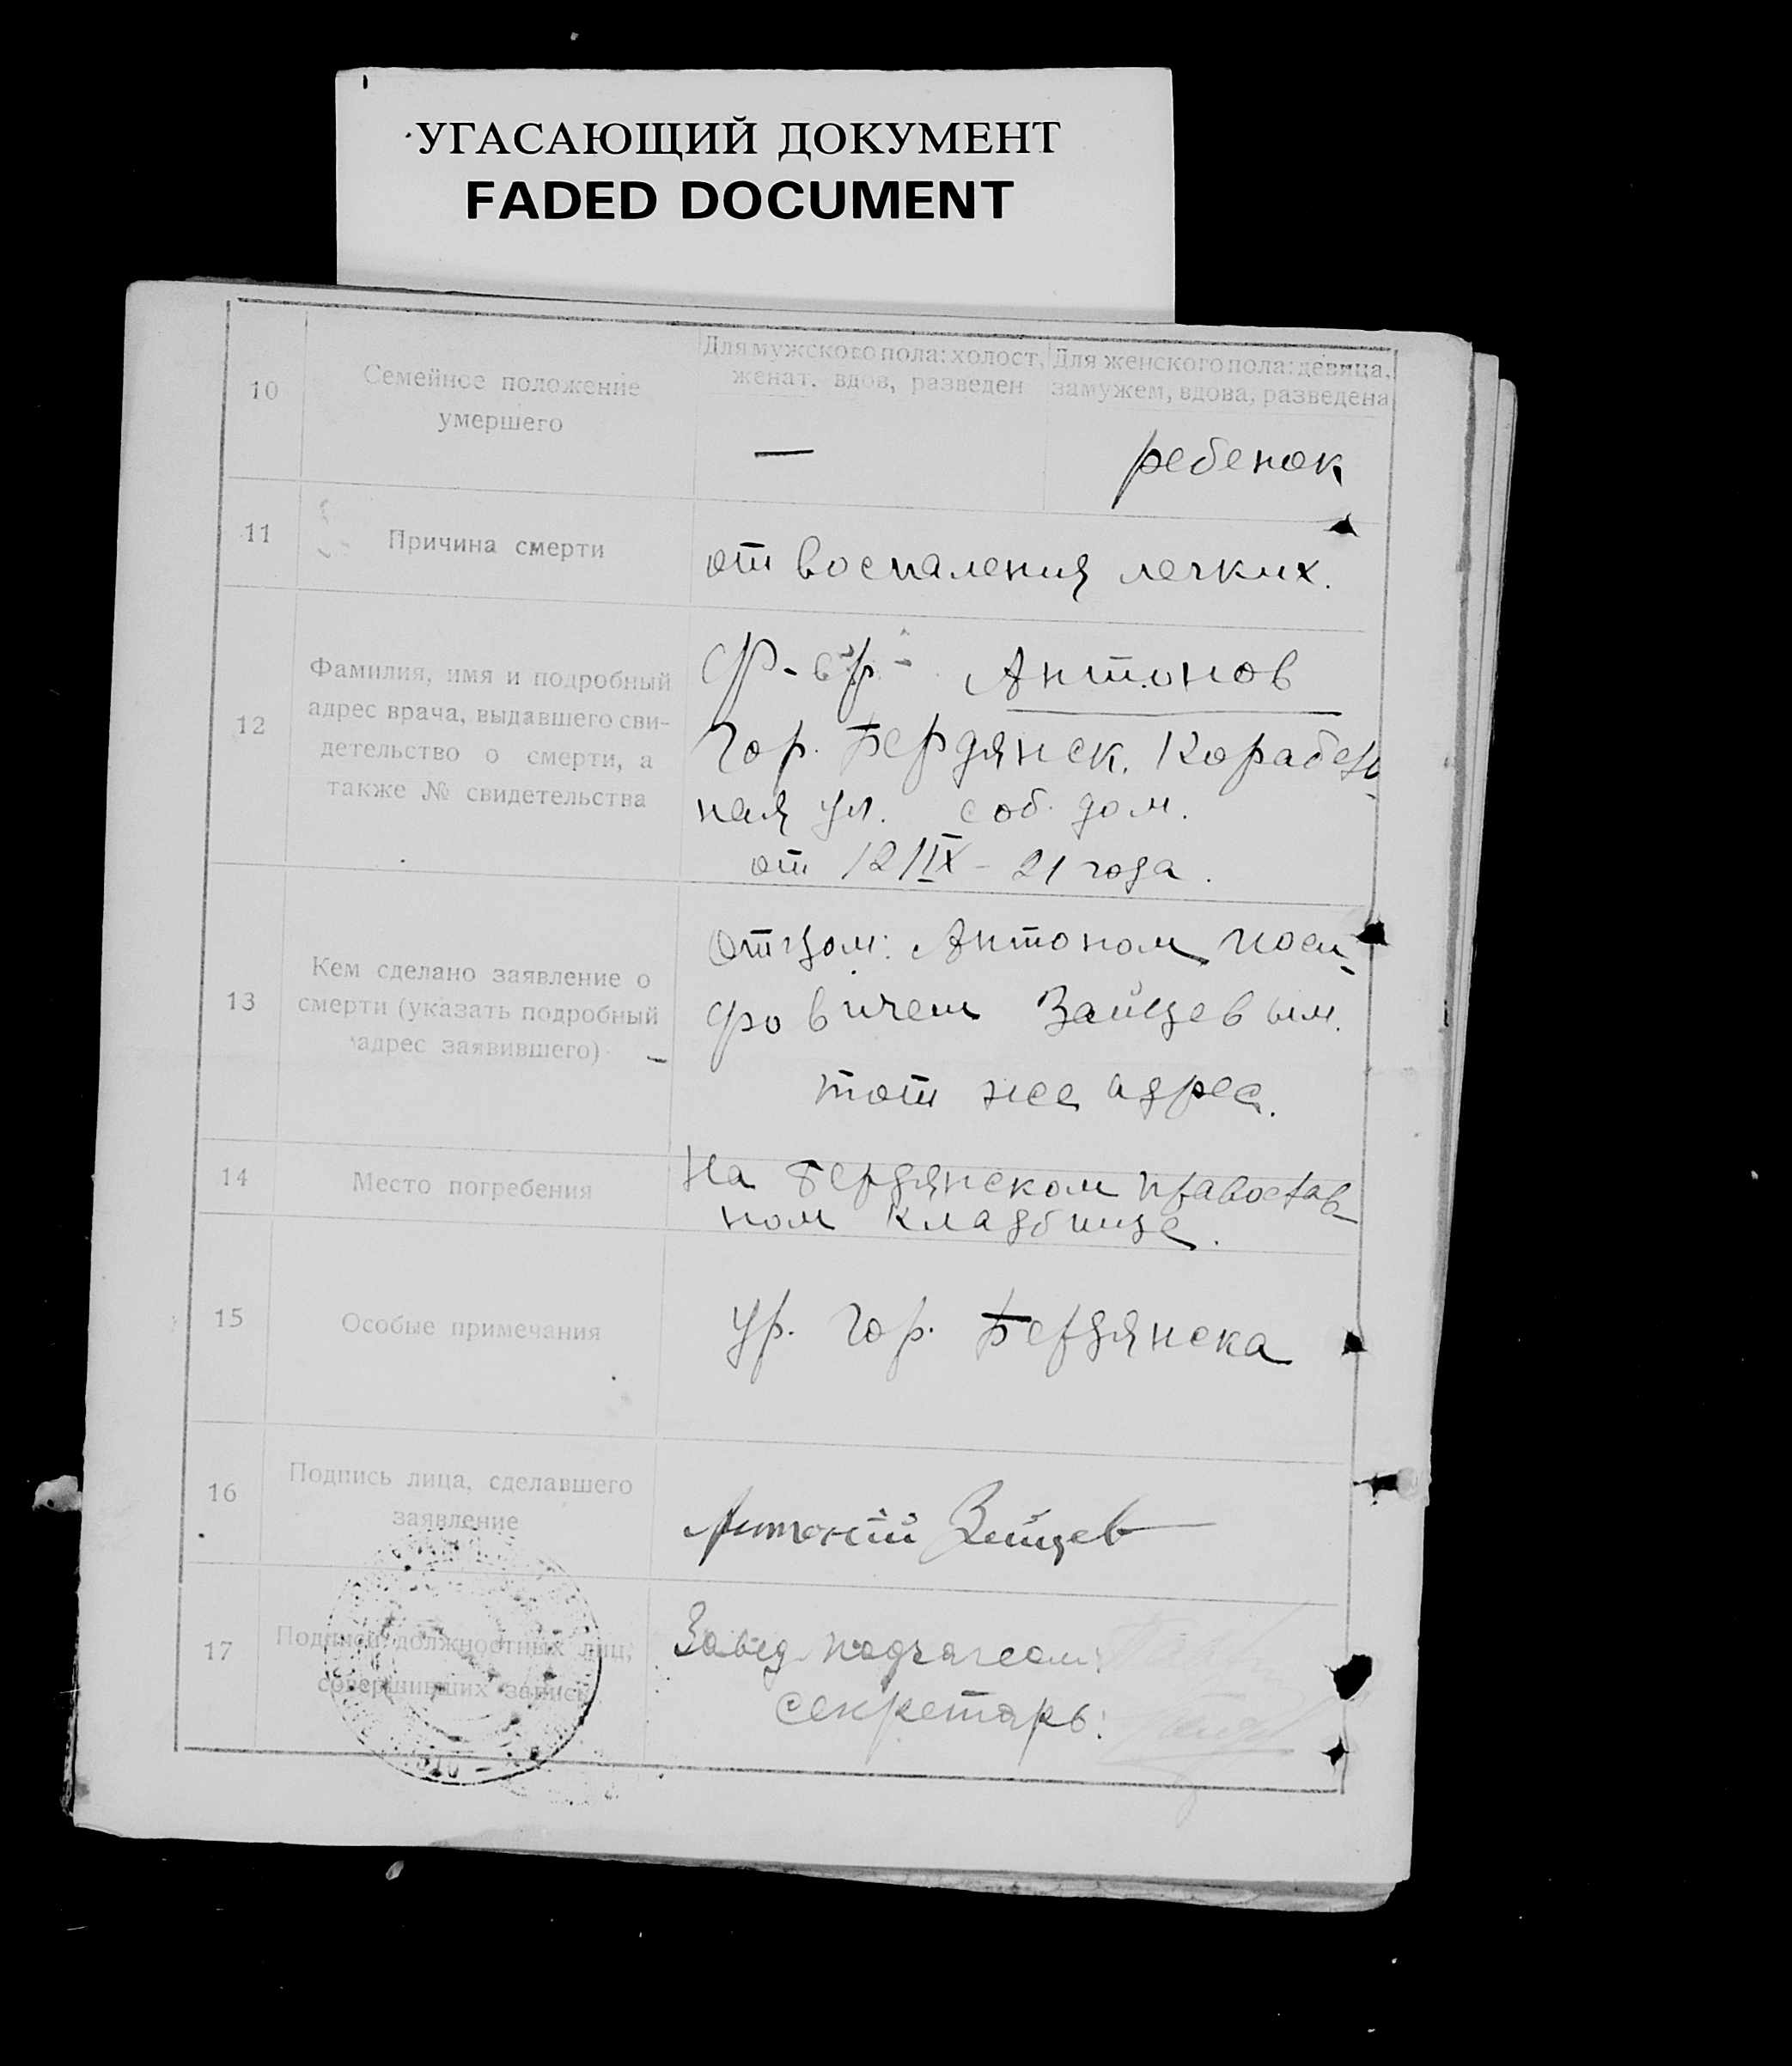 УГАСАЮЩИЙ ДОКУМЕНТ
FADED DOCUMENT
10
Семейное положение
умершего
Для мужского пола: холост,
женат. вдов, разведен
—
Для женского пола: девица,
замужем, вдова, разведена
ребенок
11
Причина смерти
от воспаления легких.
12
Фамилия, имя и подробный
адрес врача, выдавшего сви-
детельство о смерти, а
также № свидетельства
Антонов
Гор. Бердянск. Корабель-
ная ул. соб. дом.
от 12/IX - 21 года.
13
Кем сделано заявление о
смерти (указать подробный
адрес заявившего)
Отцом: Антоном Иоси-
фовичем Зайцевым.
тот же адрес.
14
Место погребения
На Бердянском православ-
ном кладбище.
15
Особые примечания
ур. гор. Бердянска
16
Подпись лица, сделавшего
заявление
Антоній Зайцев
17
Подписи должностных лиц,
совершивших запись
Завед. подзагсом:
секретарь: